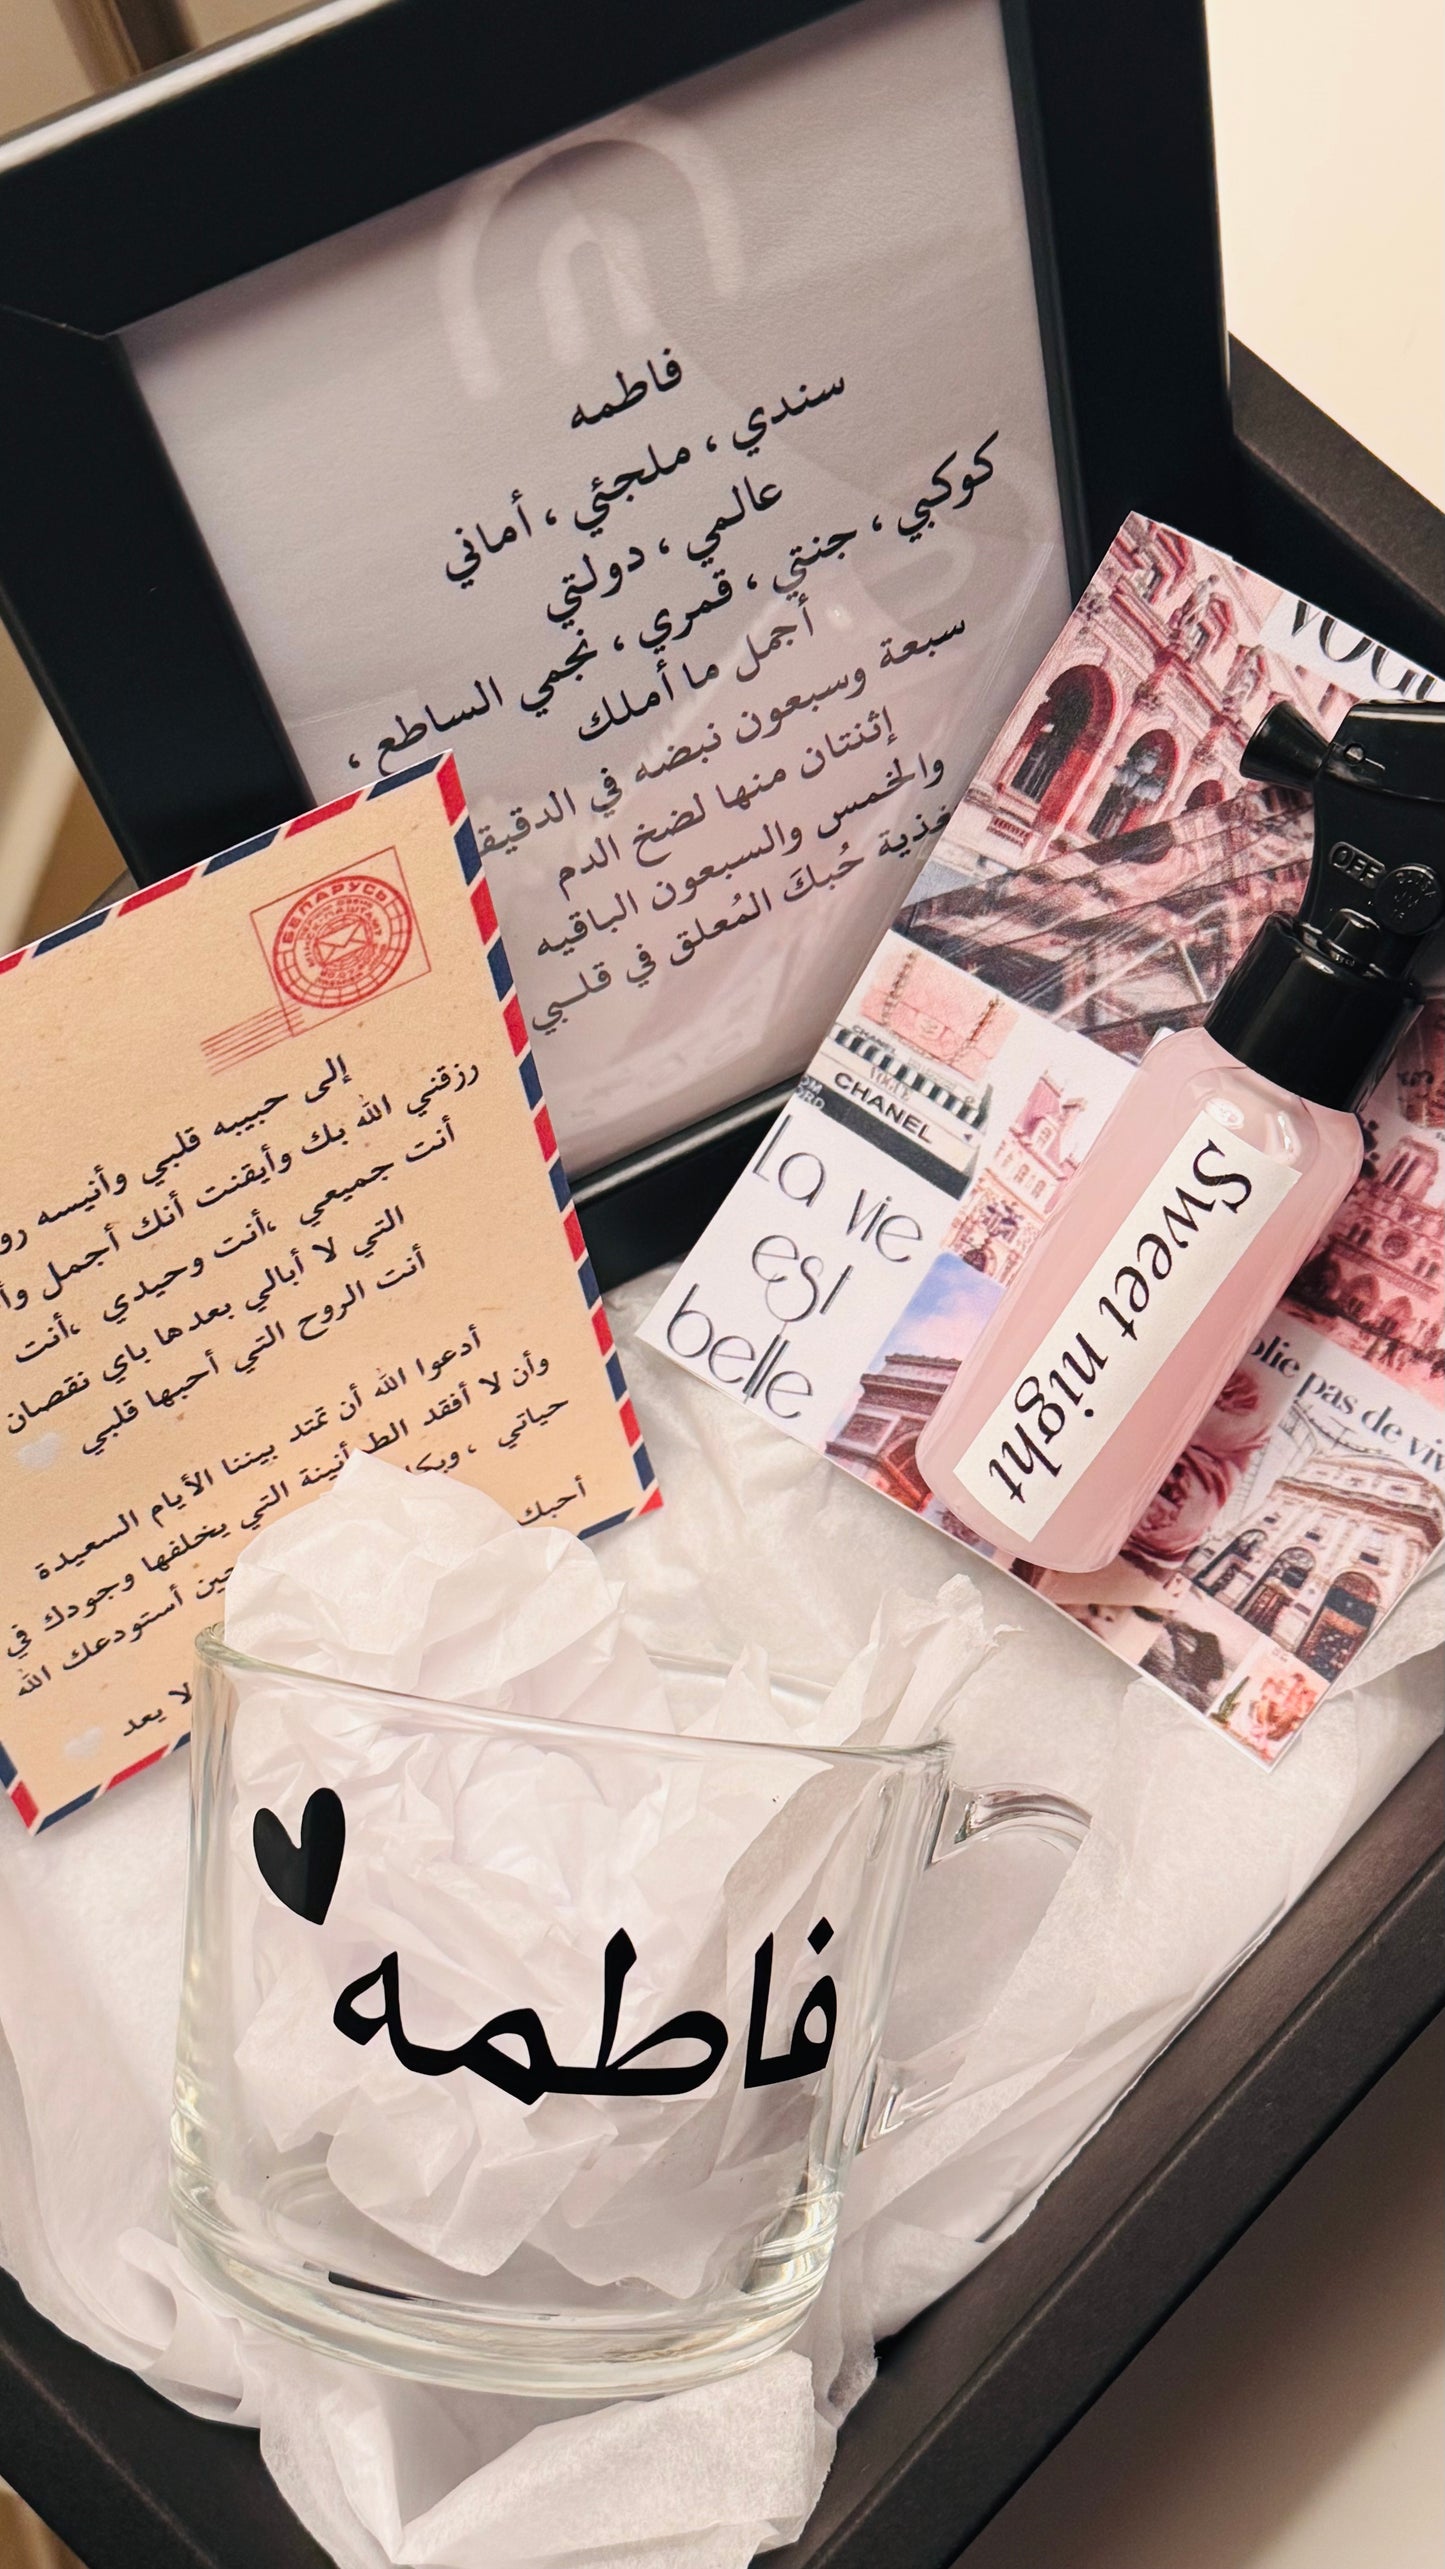 فاطمه
سندي ، ملجئي ، أماني
عالمي ، دولتي
كوكبي ، جنتي ، قمري ، نجمي الساطع ،
أجمل ما أملك
سبعة وسبعون نبضه في الدقيقة
إثنتان منها لضخ الدم
والخمس والسبعون الباقيه
حُبكَ المُعلق في قلبي
БЕЛАРУСЬ
إلى حبيبه قلبي وأنيسه
رزقني الله بك وأيقنت أنك أجمل
أنت جميعي ،أنت وحيدي ،أنت
التي لا أبالي بعدها باي نقصان
أنت الروح التي أحبها قلبي
أدعوا الله أن تمتد بيننا الأيام السعيدة
وأن لا أفقد الطمأنينة التي يخلفها وجودك في
حياتي ، أستودعك الله
أحبك
لا يعد
VOGUE
CHANEL
VOGUE
CHANEL
La vie
est
belle
OFF
Sweet night
pas de
فاطمه